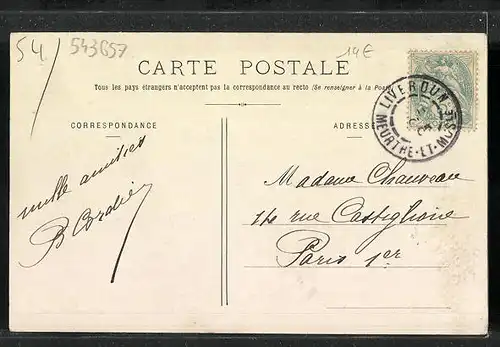 54/
543657
19€
CARTE POSTALE
Tous les pays étrangers n'acceptent pas la correspondance au recto (Se renseigner à la Poste)
CORRESPONDANCE
ADRESSE
LIVERDUN
MEURTHE-ET-MOSLE
mille amitiés
B Cordier
Madame Chauveau
14 rue Castiglione
Paris 1er